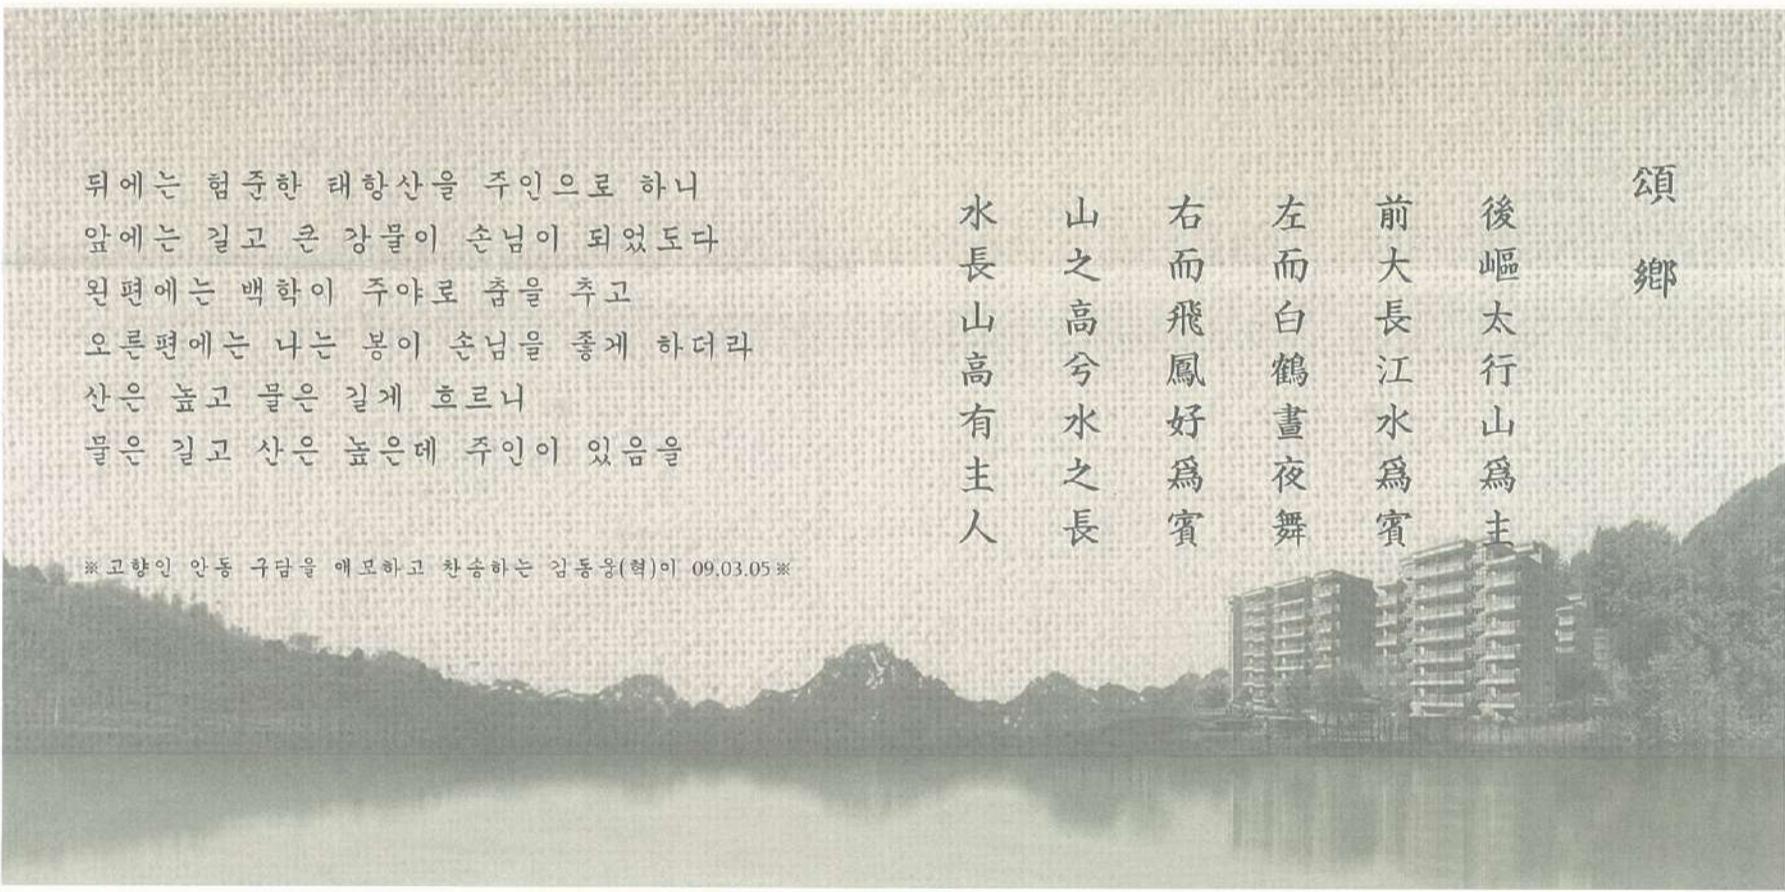 頌鄕
後嶇太行山爲主
前大長江水爲賓
左而白鶴晝夜舞
右而飛鳳好爲賓
山之高兮水之長
水長山高有主人
뒤에는 험준한 태항산을 주인으로 하니
앞에는 길고 큰 강물이 손님이 되었도다
왼편에는 백학이 주야로 춤을 추고
오른편에는 나는 봉이 손님을 좋게 하더라
산은 높고 물은 길게 흐르니
물은 길고 산은 높은데 주인이 있음을
※고향인 안동 구담을 애모하고 찬송하는 김동웅(혁)이 09.03.05※